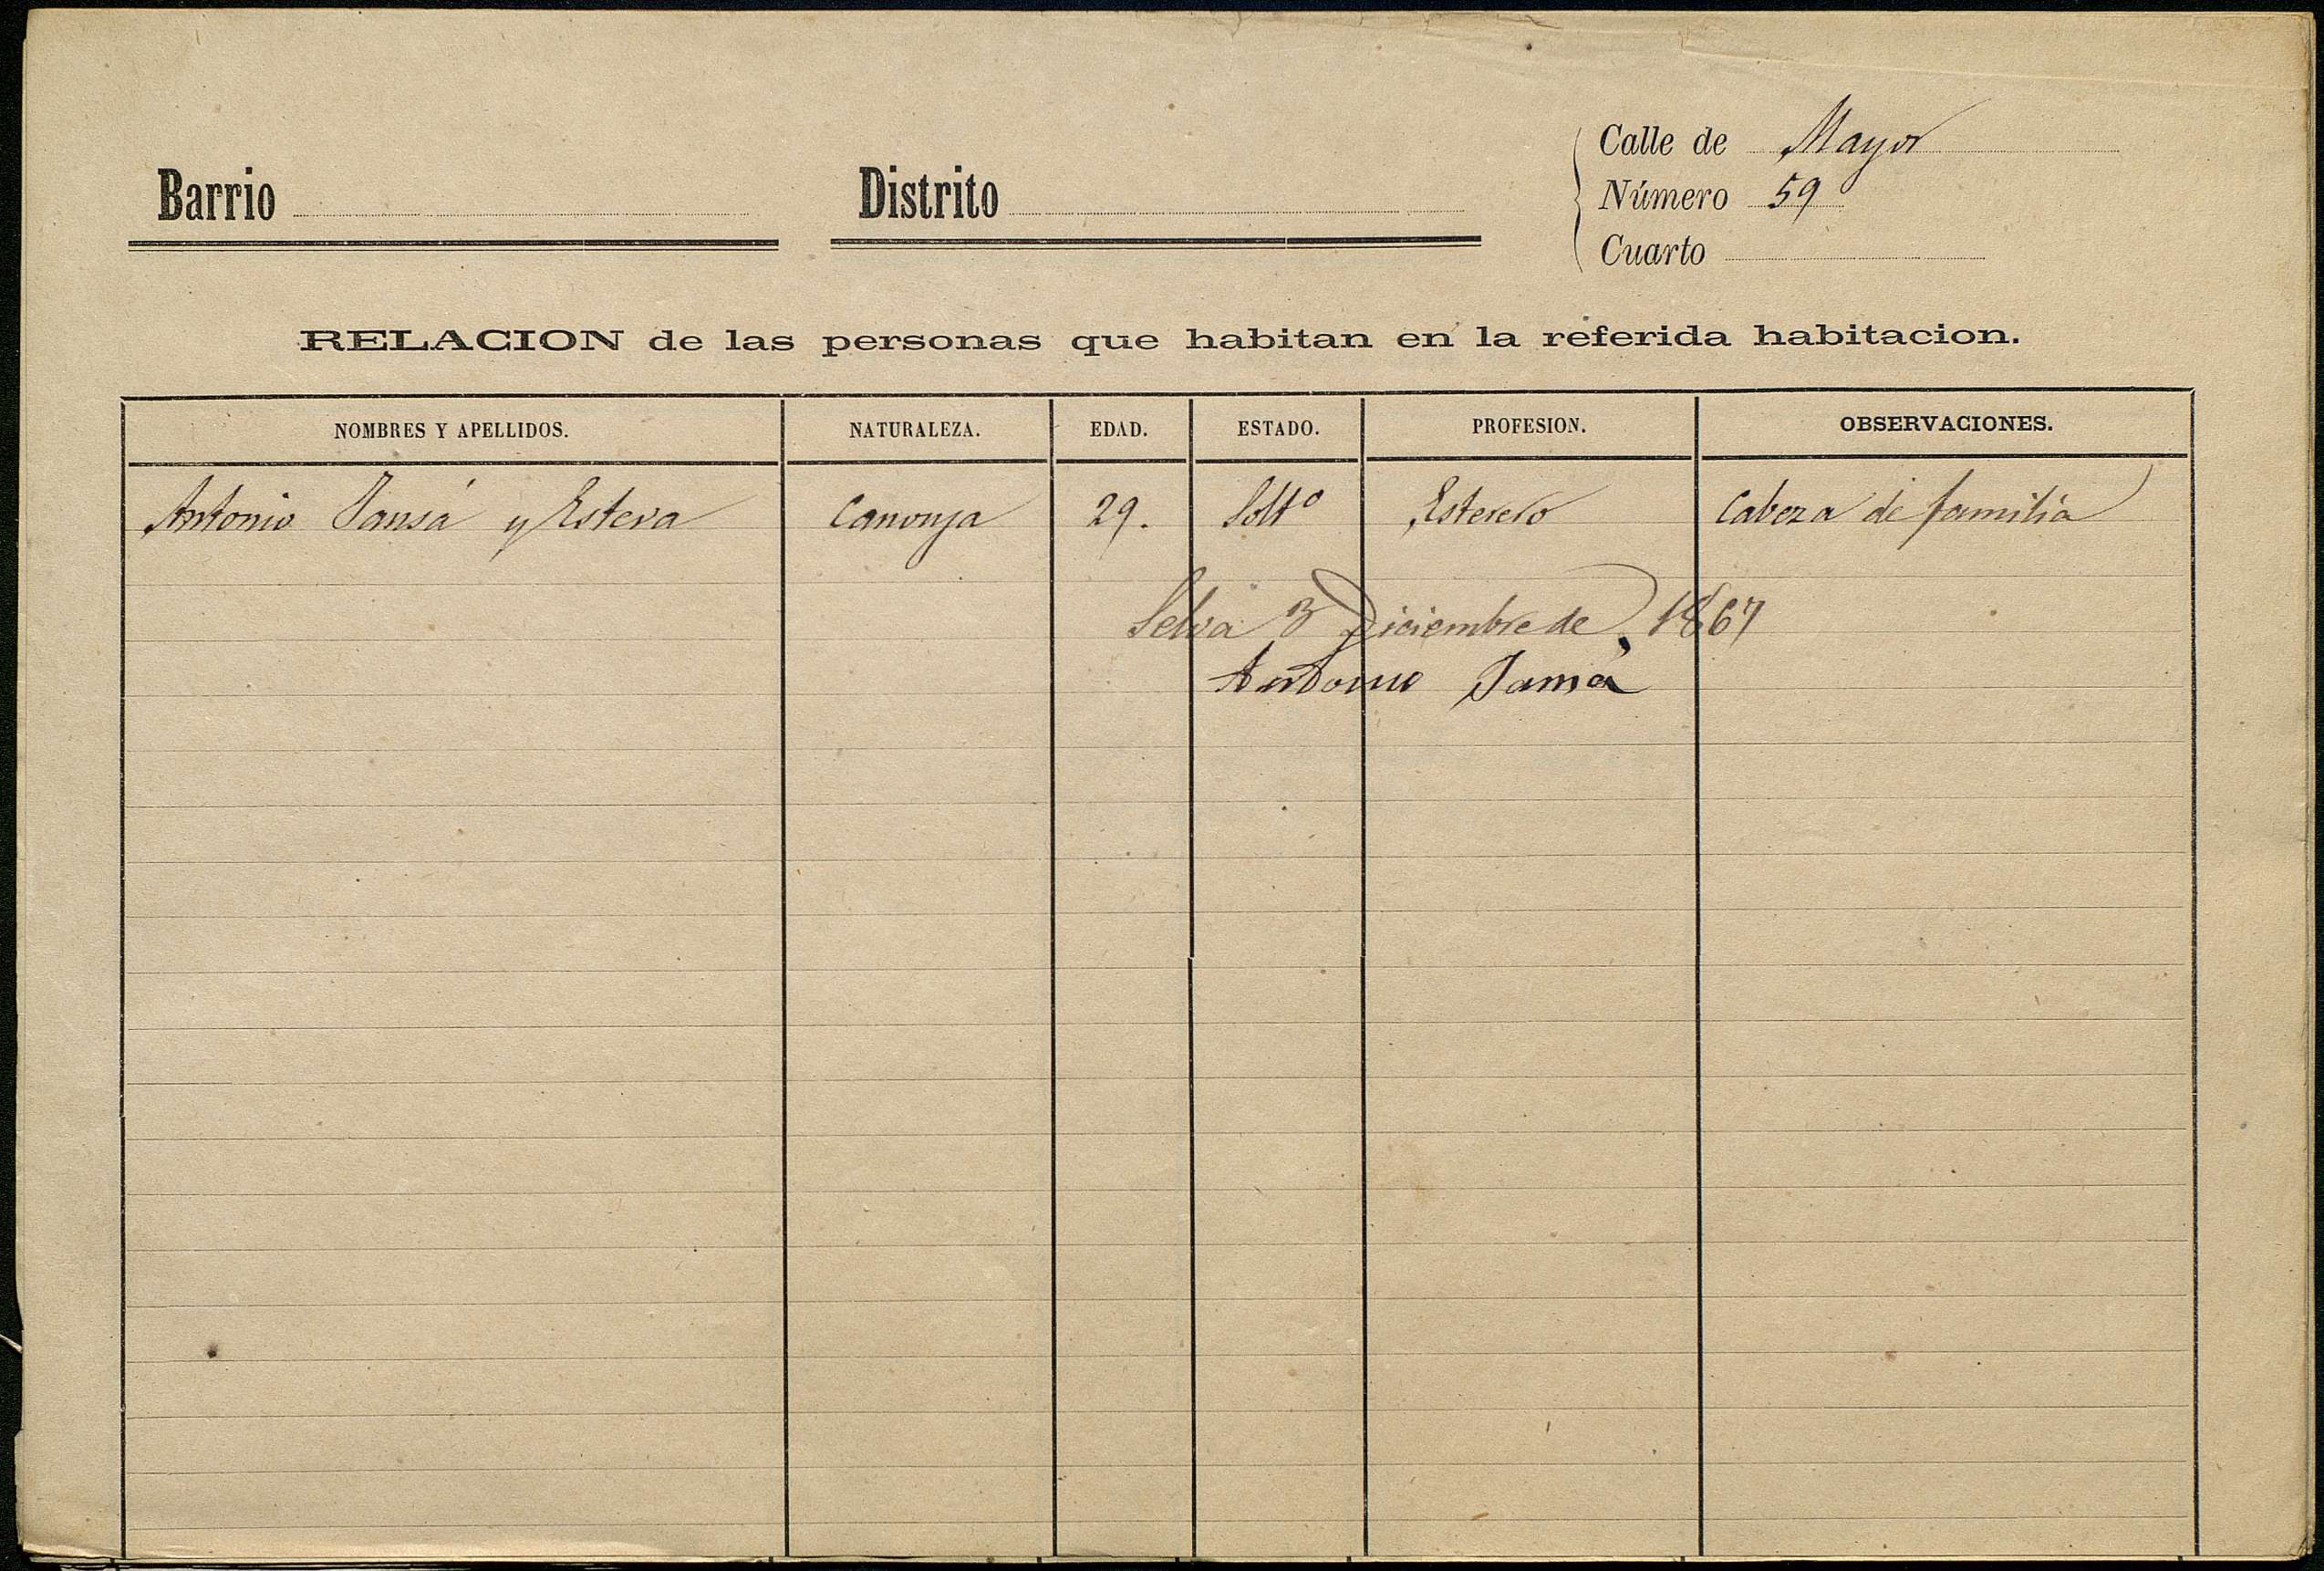 Calle de Mayor
Barrio Distrito Número 59
Cuarto
RELACION de las personas que habitan en la referida habitacion.
NOMBRES Y APELLIDOS. NATURALEZA. EDAD. ESTADO. PROFESION. OBSERVACIONES.
Antonio Jansá y Esteva Canonja 29. Solto Esterero Cabeza de familia
Selva 3 Diciembre de 1867
Antonio Jansá